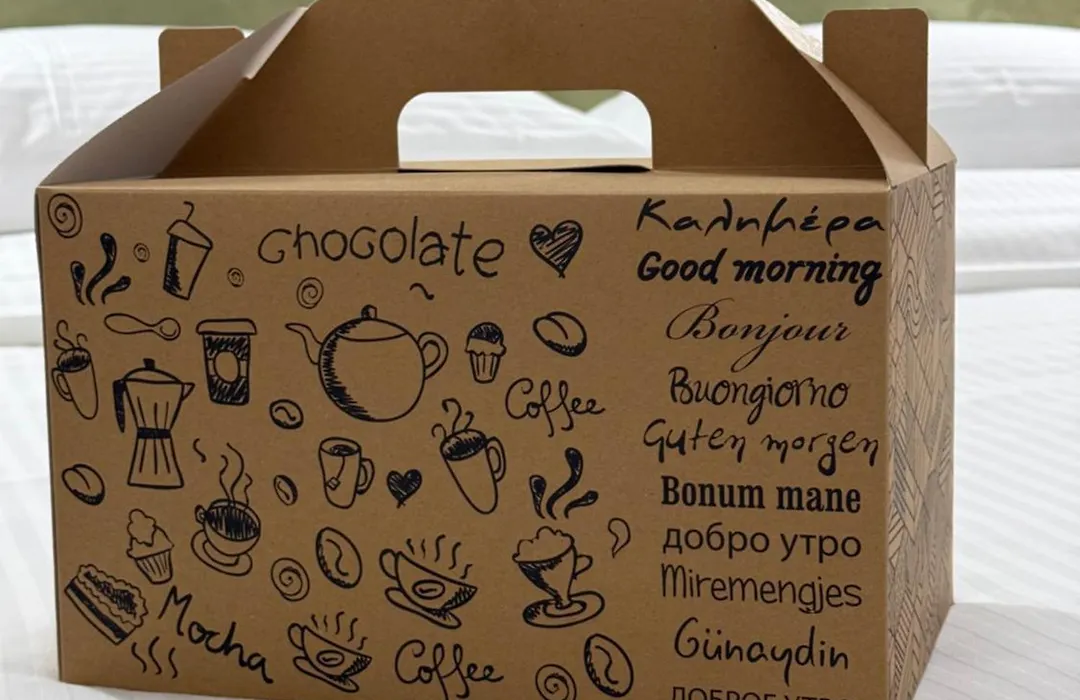 Chocolate
Coffee
Mocha
Coffee
Καλημέρα
Good morning
Bonjour
Buongiorno
Guten morgen
Bonum mane
добро утро
Miremengjes
Günaydin